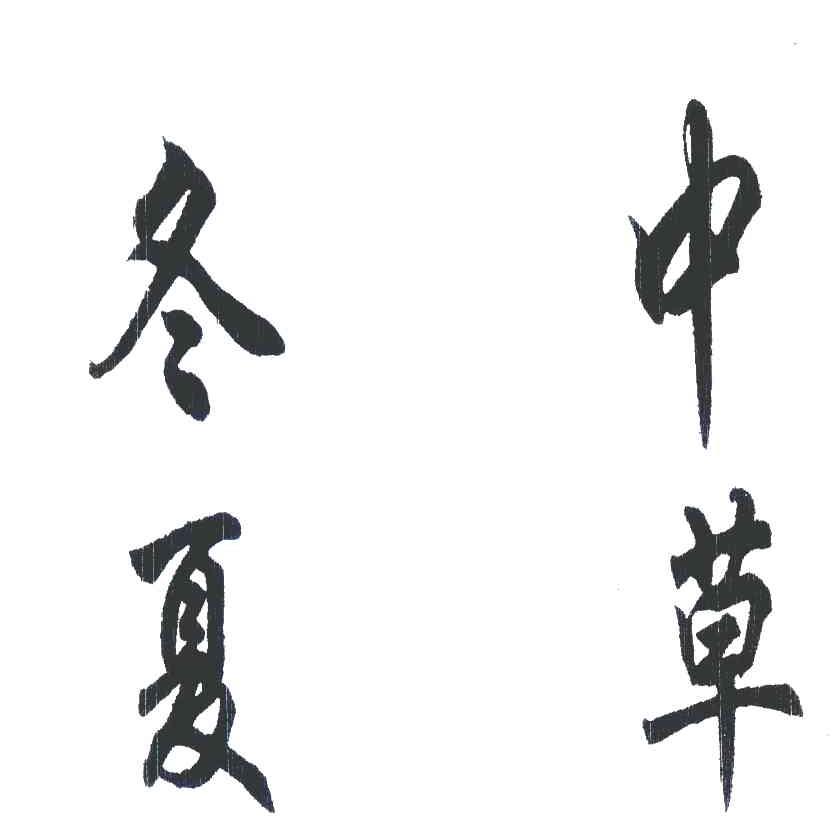 中草
冬夏